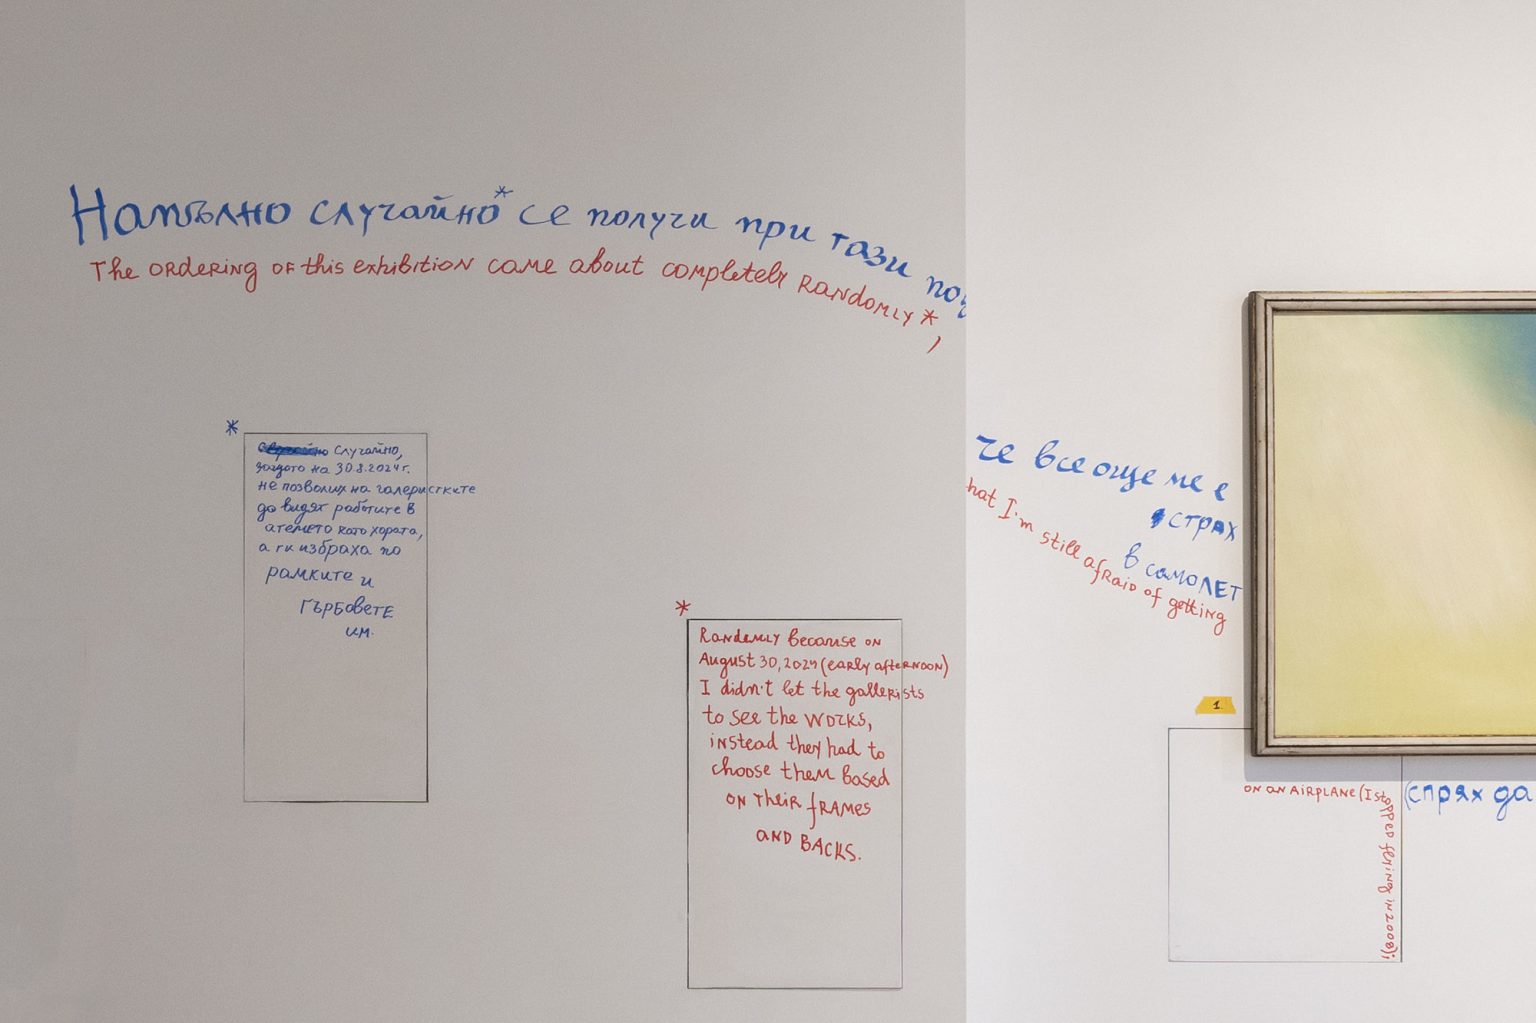 Напълно случайно* се получи при тази
The ordering of this exhibition came about completely randomly*,
*
Случайно,
защото на 30.8.2024г.
не позволих на галеристките
да видят работите в
ателието като хората,
а ги избраха по
рамките и
гърбовете
им.
*
Randomly because on
August 30, 2024 (early afternoon)
I didn't let the gallerists
to see the works,
instead they had to
choose them based
on their frames
and backs.
че все още ме е
страх
в самолет
hat I'm still afraid of getting
1.
on an airplane (I stopped flying in 2008);
(спрях да